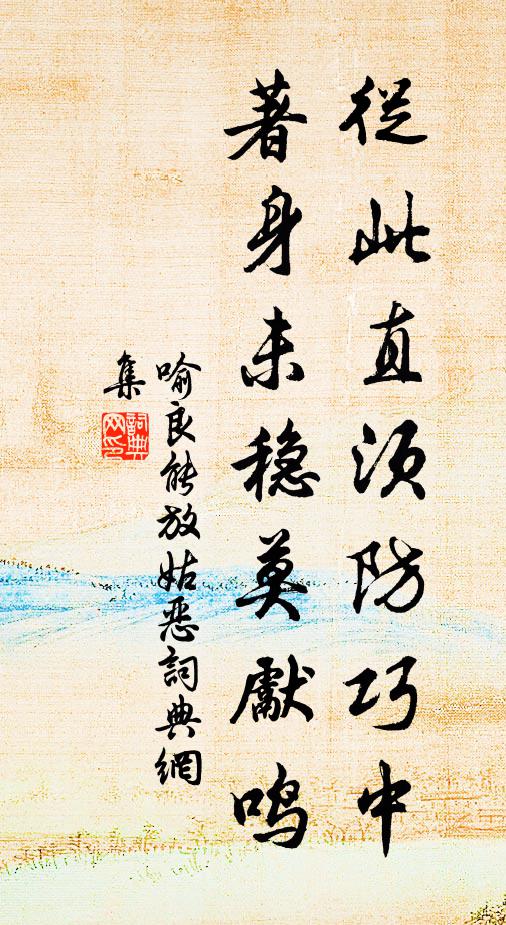 從此直須防巧中
著身未穩莫獻鳴
喻良能放姑惡詞典網
集
詞典
网印